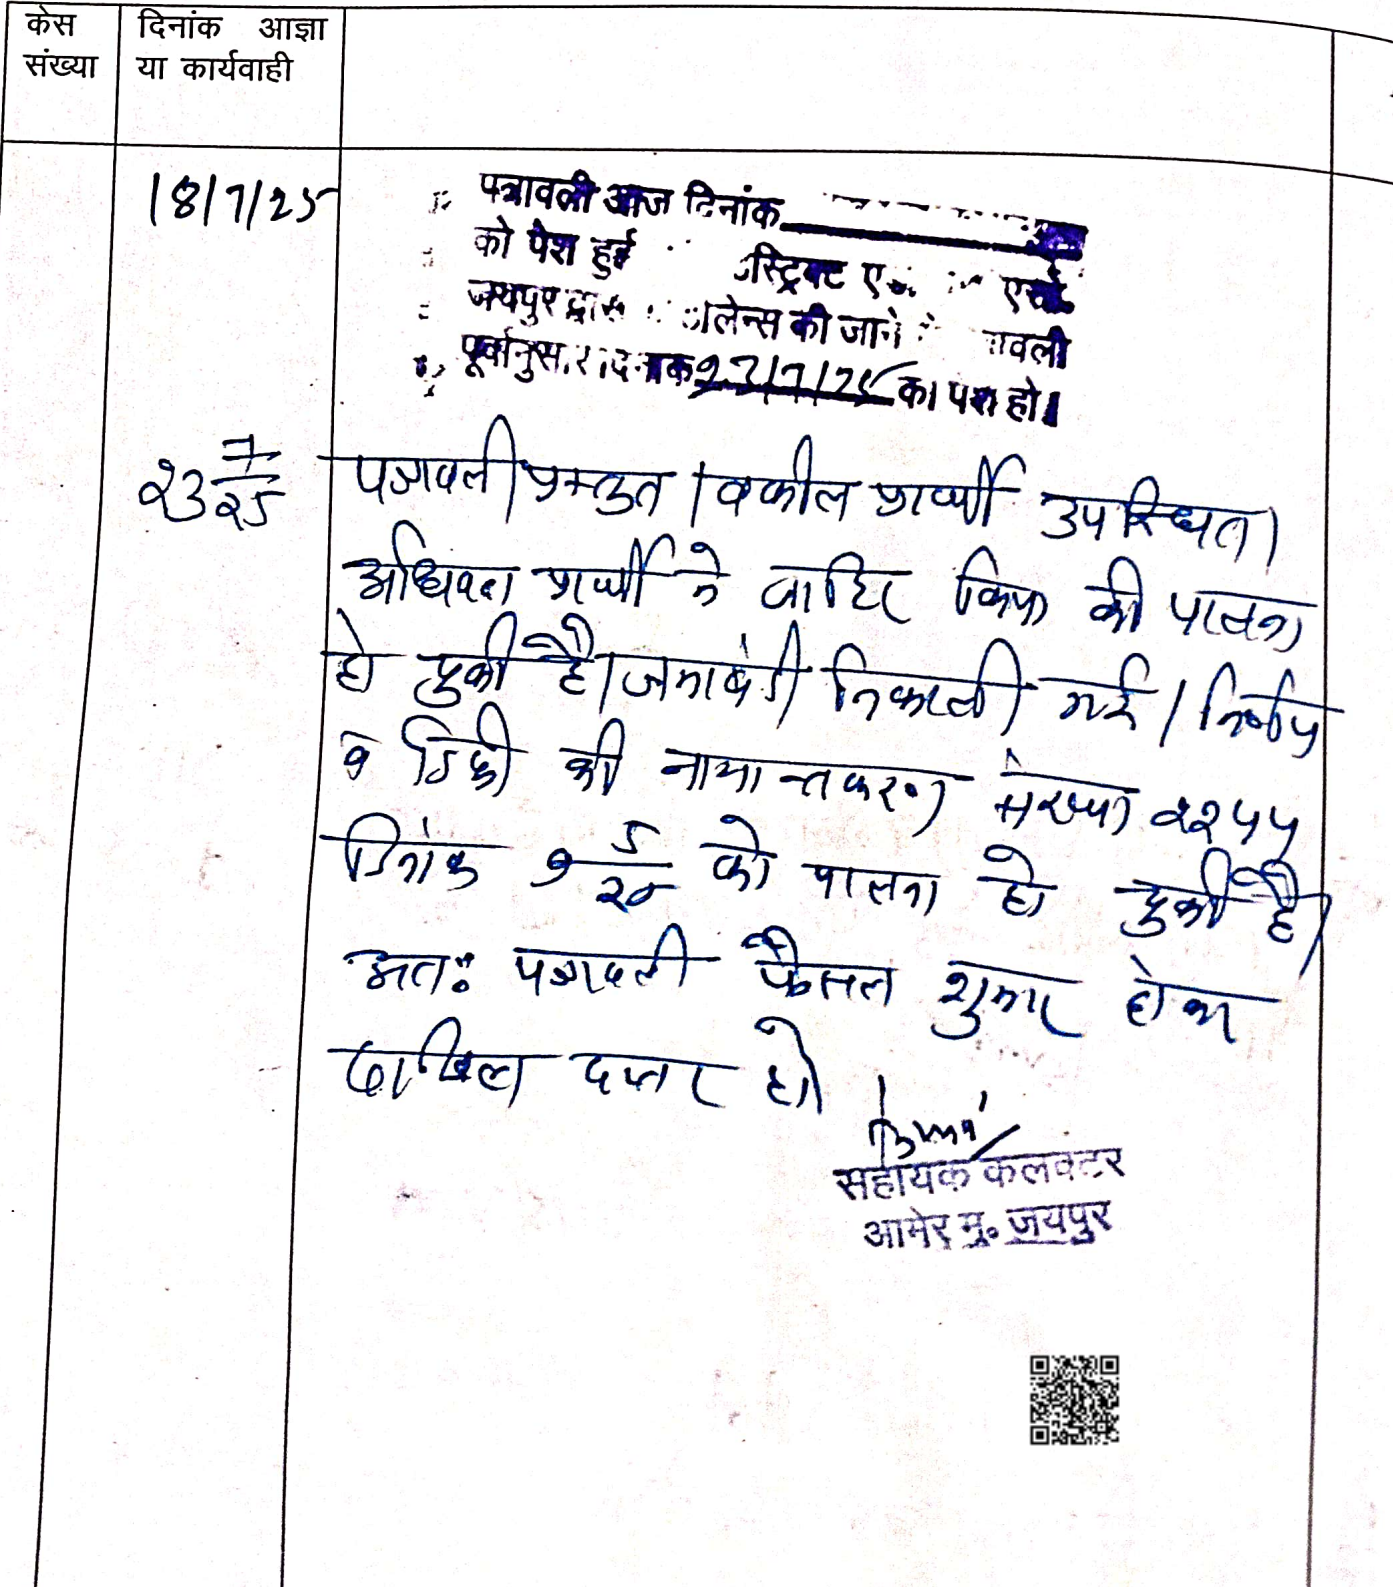 केस संख्या
दिनांक आज्ञा या कार्यवाही
18/7/25
पत्रावली आज दिनांक
को पेश हुई स्ट्रिक्ट ए
जयपुर द्वारा की जाने वली
पूर्वानुसार दिनांक 23/7/25 को पेश हो।
23 7/25
पत्रावली प्रस्तुत । वकील प्रार्थी उपस्थित।
अधिवक्ता प्रार्थी ने जाहिर किया की पालना
हो चुकी है। जमाबंदी निकाली गई। निर्णय
व डिक्री की नामान्तकरण संख्या २२५५
दिनांक ७ 5/20 को पालना हो चुकी है।
अतः पत्रावली फैसल शुमार होकर
दाखिल दफ्तर हो।
सहायक कलक्टर
आमेर मु० जयपुर